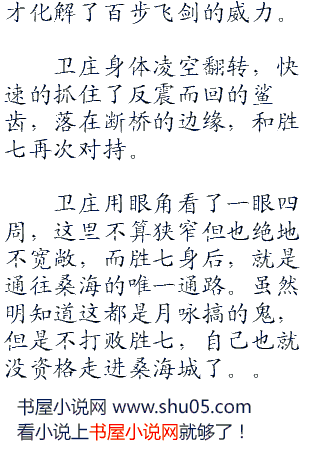 才化解了百步飞剑的威力。
卫庄身体凌空翻转，快
速的抓住了反震而回的鲨
齿，落在断桥的边缘，和胜
七再次对持。
卫庄用眼角看了一眼四
周，这里不算狭窄但也绝地
不宽敞，而胜七身后，就是
通往桑海的唯一通路。虽然
明知道这都是月咏搞的鬼，
但是不打败胜七，自己也就
没资格走进桑海城了。。
书屋小说网 www.shu05.com
看小说上书屋小说网就够了！